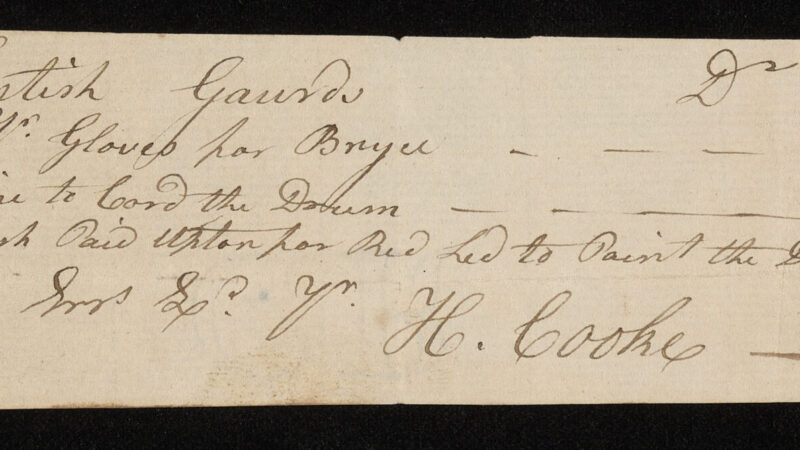 ntish Gaurds Dr
Pr. Gloves for Bryee — — —
ine to Cord the Drum — — —
sh Paid Upton for Red Led to Paint the D
Errs Exd. Pr. H. Cooke —